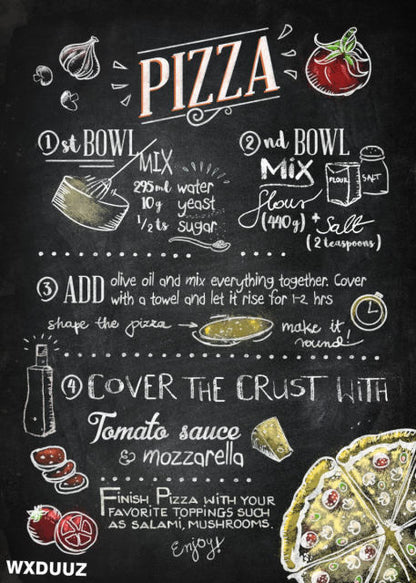 PIZZA
1st BOWL
MIX
295ml water
10g yeast
1/2 ts sugar
2nd BOWL
MiX
FLOUR
SALT
flour
(440g) + Salt
(2 teaspoons)
3 ADD olive oil and mix everything together. Cover
with a towel and let it rise for 1-2 hrs
shape the pizza
make it
round!
4 COVER THE CRUST WITH
Tomato sauce
& mozzarella
FINISH PIZZA WITH YOUR
FAVORITE TOPPINGS SUCH
AS SALAMI, MUSHROOMS.
Enjoy!
WXDUUZ